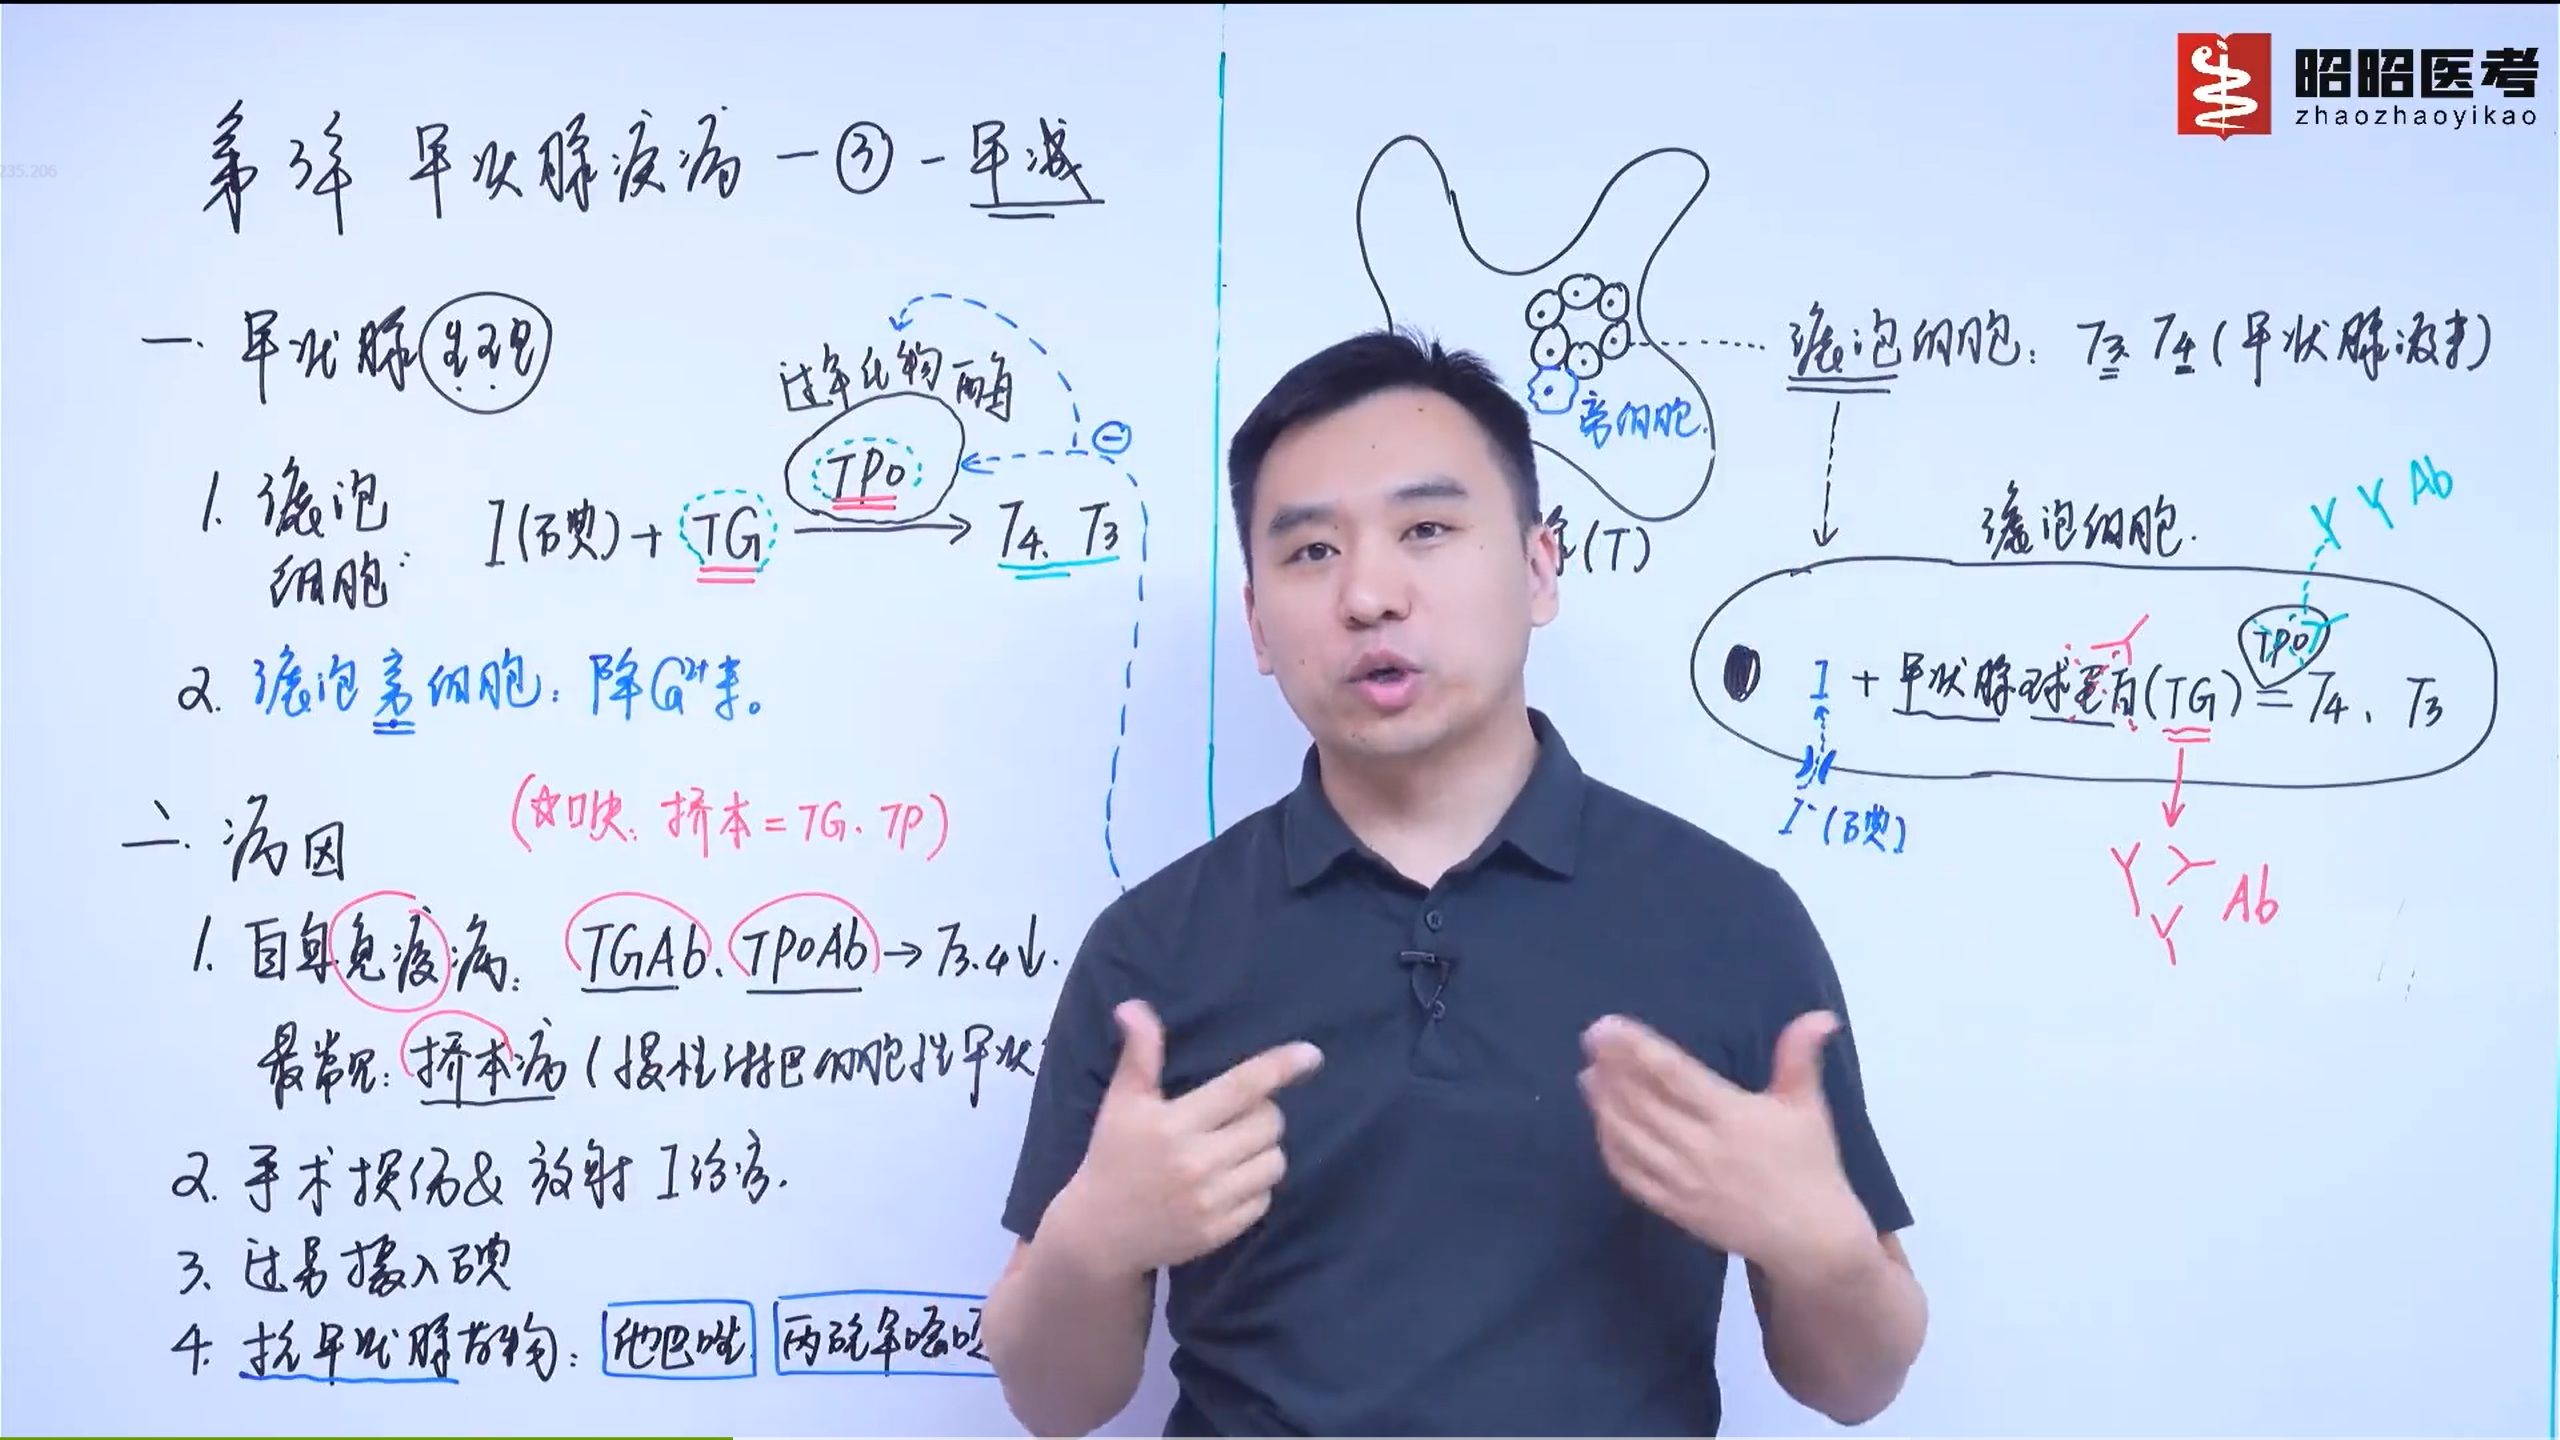 昭昭医考
zhaozhaoyikao
235.206
第3章 甲状腺疾病-③-甲减
一. 甲状腺生理
过氧化物酶
1. 滤泡细胞: I(碘)+TG TPO T4、T3
2. 滤泡旁细胞: 降Ca2+素。
二. 病因 (☆口诀: 桥本=TG. TP)
1. 自身免疫病: TGAb、TPOAb→T3.4↓.
最常见: 桥本病(慢性淋巴细胞性甲状
2. 手术损伤& 放射I治疗.
3. 过量摄入碘
4. 抗甲状腺药物: 他巴唑 丙硫氧嘧
滤泡细胞: T3、T4(甲状腺激素)
旁细胞.
(T)
滤泡细胞.
Ab
I + 甲状腺球蛋白(TG) TPO = T4、T3
I-(碘)
Ab